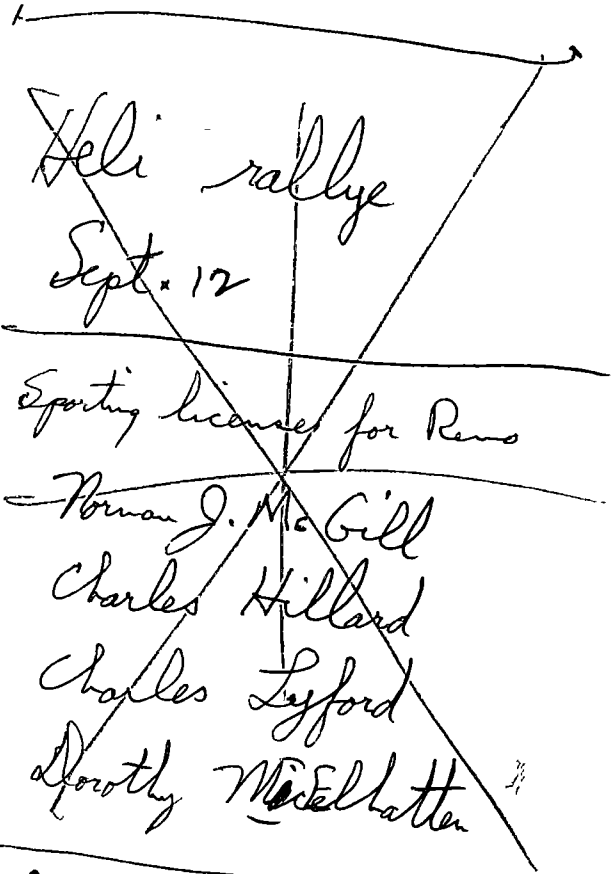 Heli rallye
Sept. 12
Sporting licenses for Reno
Norman J. McGill
Charles Hillard
Charles Lyford
Dorothy McElhatten